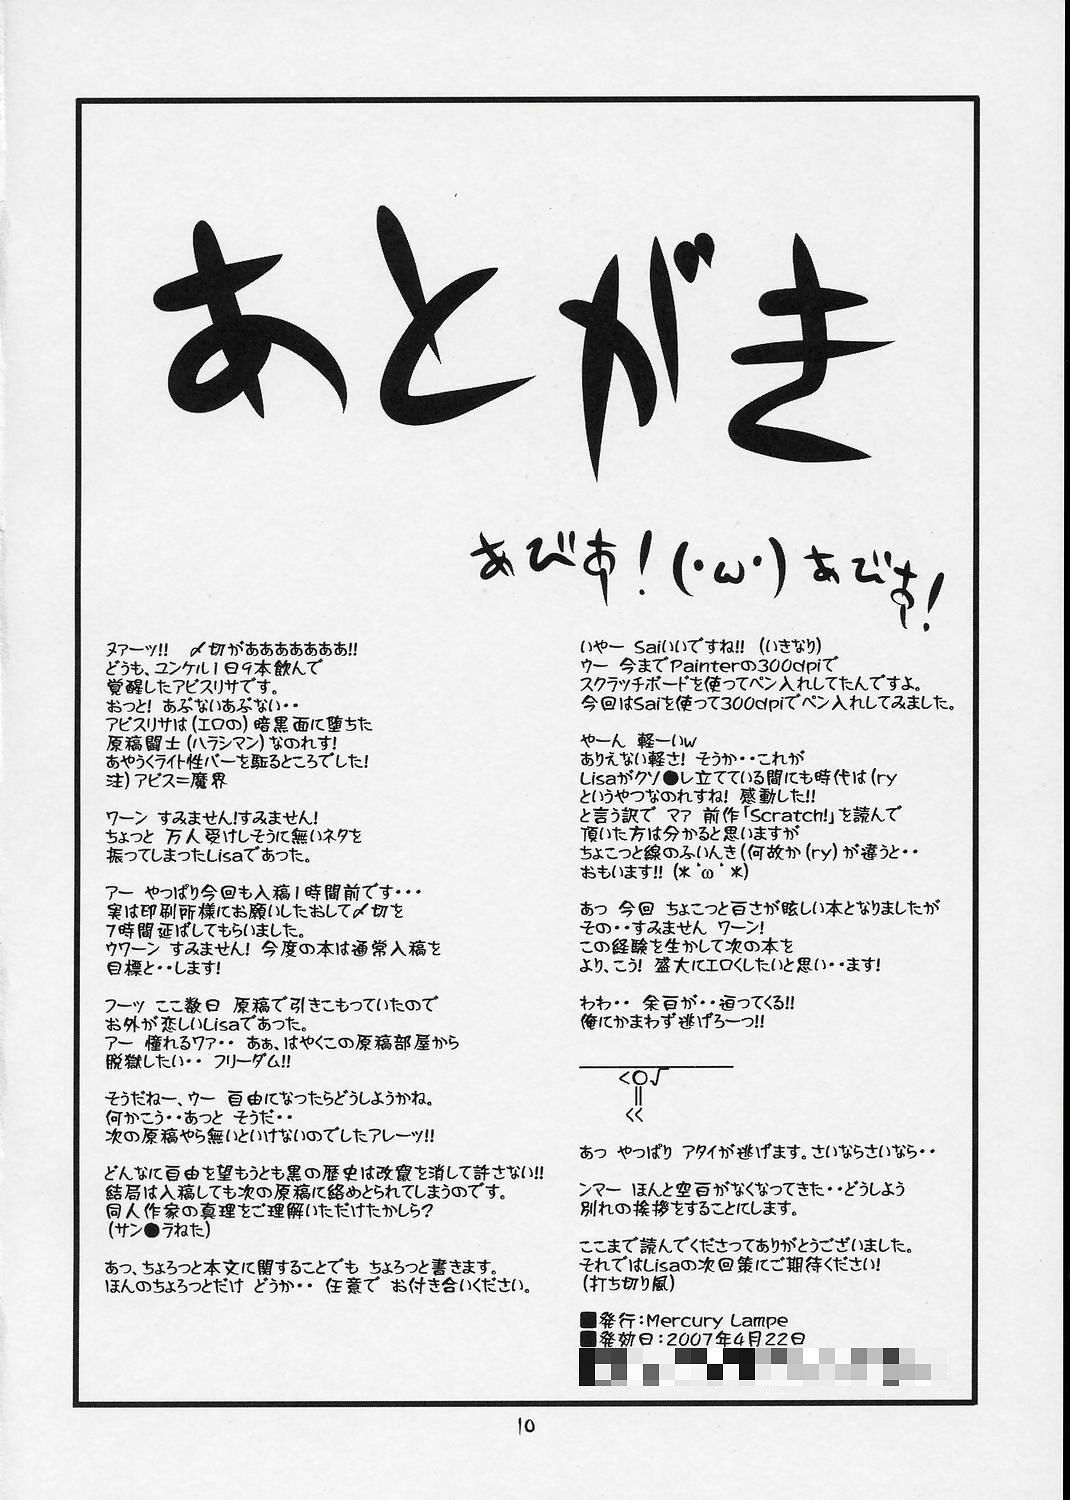 あとがき
あびす!(・ω・)あびす!
ヌァーッ!! 〆切がああああああ!!
どうも、ユンケル1日9本飲んで
覚醒したアビスリサです。
おっと! あぶないあぶない・・
アビスリサは(エロの)暗黒面に堕ちた
原稿闘士(ハラシマン)なのれす!
あやうくライト性バーを駈るところでした!
注)アビス=魔界
ワーン すみません!すみません!
ちょっと 万人受けしそうに無いネタを
振ってしまったLisaであった。
アー やっぱり今回も入稿1時間前です・・・
実は印刷所様にお願いしたおして〆切を
7時間延ばしてもらいました。
ウワーン すみません! 今度の本は通常入稿を
目標と・・します!
フーッ ここ数日 原稿で引きこもっていたので
お外が恋しいLisaであった。
アー 憧れるワァ・・ あぁ、はやくこの原稿部屋から
脱獄したい・・ フリーダム!!
そうだねー、ウー 自由になったらどうしようかね。
何かこう・・あっと そうだ・・
次の原稿やら無いといけないのでしたアレーッ!!
どんなに自由を望もうとも黒の歴史は改竄を消して許さない!!
結局は入稿しても次の原稿に絡めとられてしまうのです。
同人作家の真理をご理解いただけたかしら?
(サン●ラねた)
あっ、ちょろっと本文に関することでも ちょろっと書きます。
ほんのちょろっとだけ どうか・・ 任意で お付き合いください。
いやー Saiいいですね!! (いきなり)
ウー 今までPainterの300dpiで
スクラッチボードを使ってペン入れしてたんですよ。
今回はSaiを使って300dpiでペン入れしてみました。
やーん 軽ーいw
ありえない軽さ! そうか・・これが
Lisaがクソ●し立てている間にも時代は(ry
というやつなのれすね! 感動した!!
と言う訳で マァ 前作「Scratch!」を読んで
頂いた方は分かると思いますが
ちょこっと線のふいんき(何故か(ry)が違うと・・
おもいます!! (*´ω`*)
あっ 今回 ちょこっと白さが眩しい本となりましたが
その・・すみません ワーン!
この経験を生かして次の本を
より、こう! 盛大にエロくしたいと思い・・ます!
わわ・・ 余白が・・迫ってくる!!
俺にかまわず逃げろーっ!!
<○√
‖
<<
あっ やっぱり アタイが逃げます。さいならさいなら・・
ンマー ほんと空白がなくなってきた・・どうしよう
別れの挨拶をすることにします。
ここまで読んでくださってありがとうございました。
それではLisaの次回策にご期待ください!
(打ち切り風)
■発行:Mercury Lampe
■発効日:2007年4月22日
10